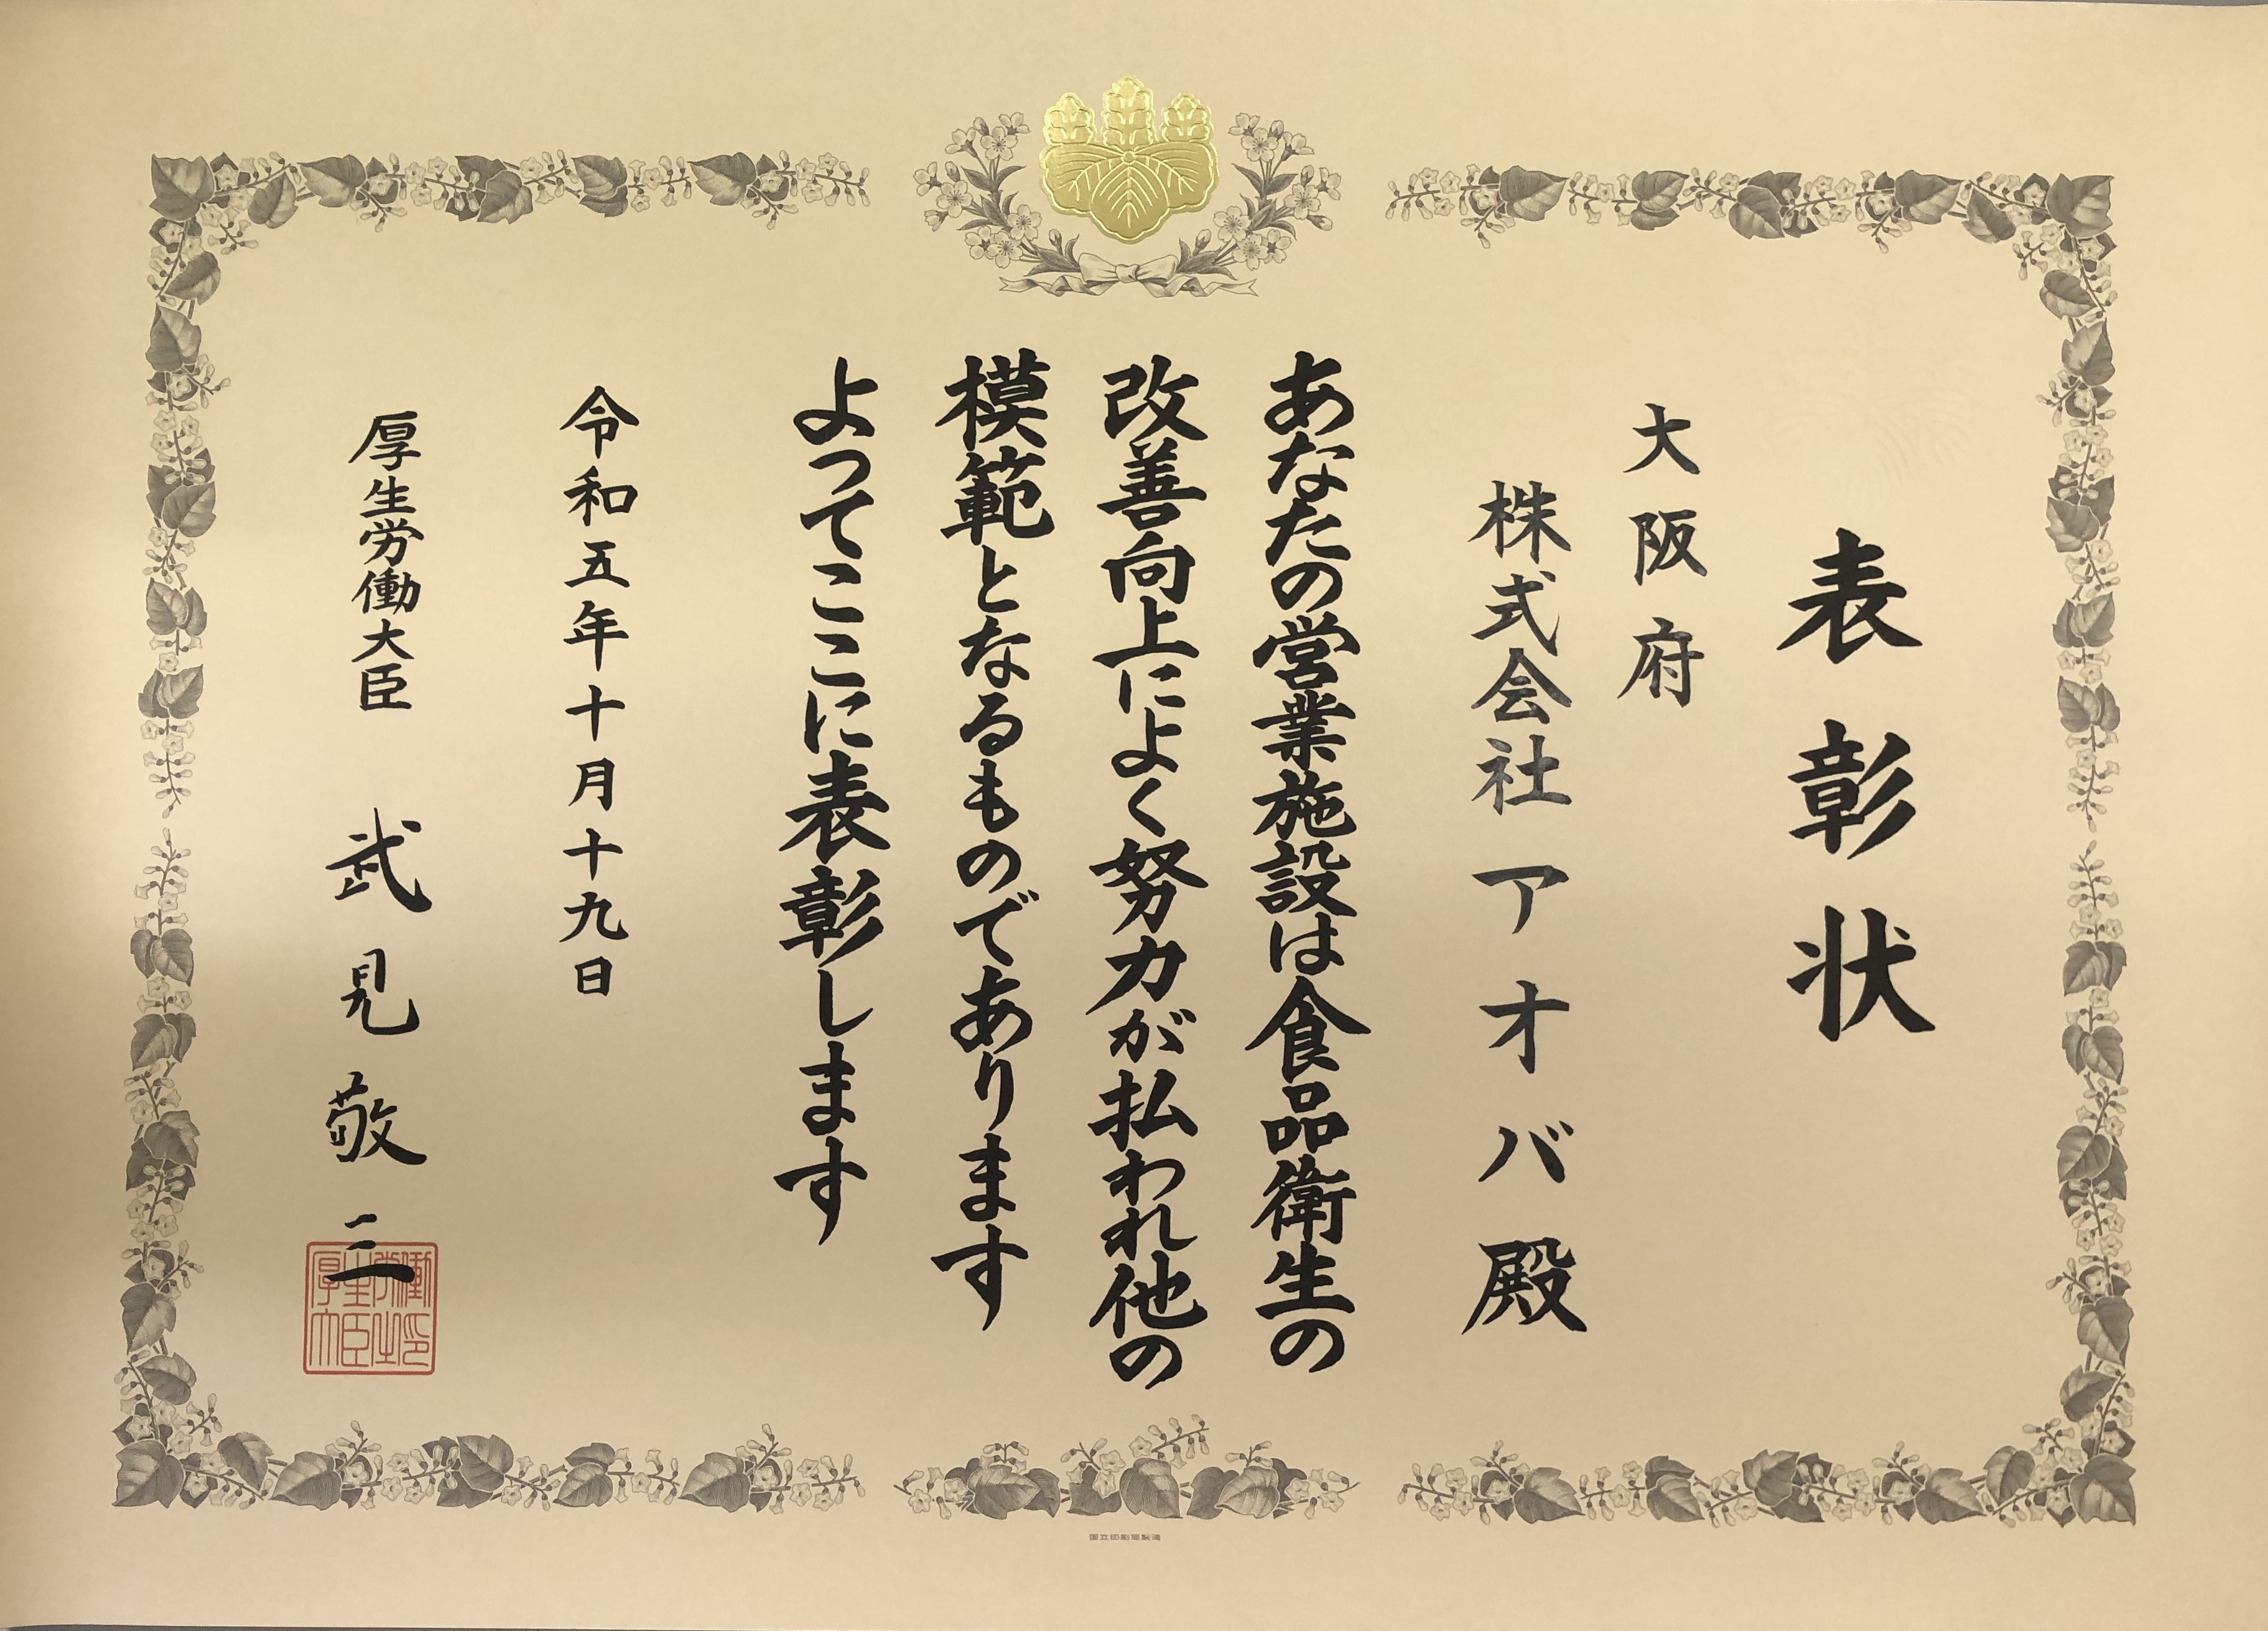 表彰状
大阪府
株式会社アオバ殿
あなたの営業施設は食品衛生の
改善向上によく努力が払われ他の
模範となるものであります
よってここに表彰します
令和五年十月十九日
厚生労働大臣 武見敬三
国立印刷局製造